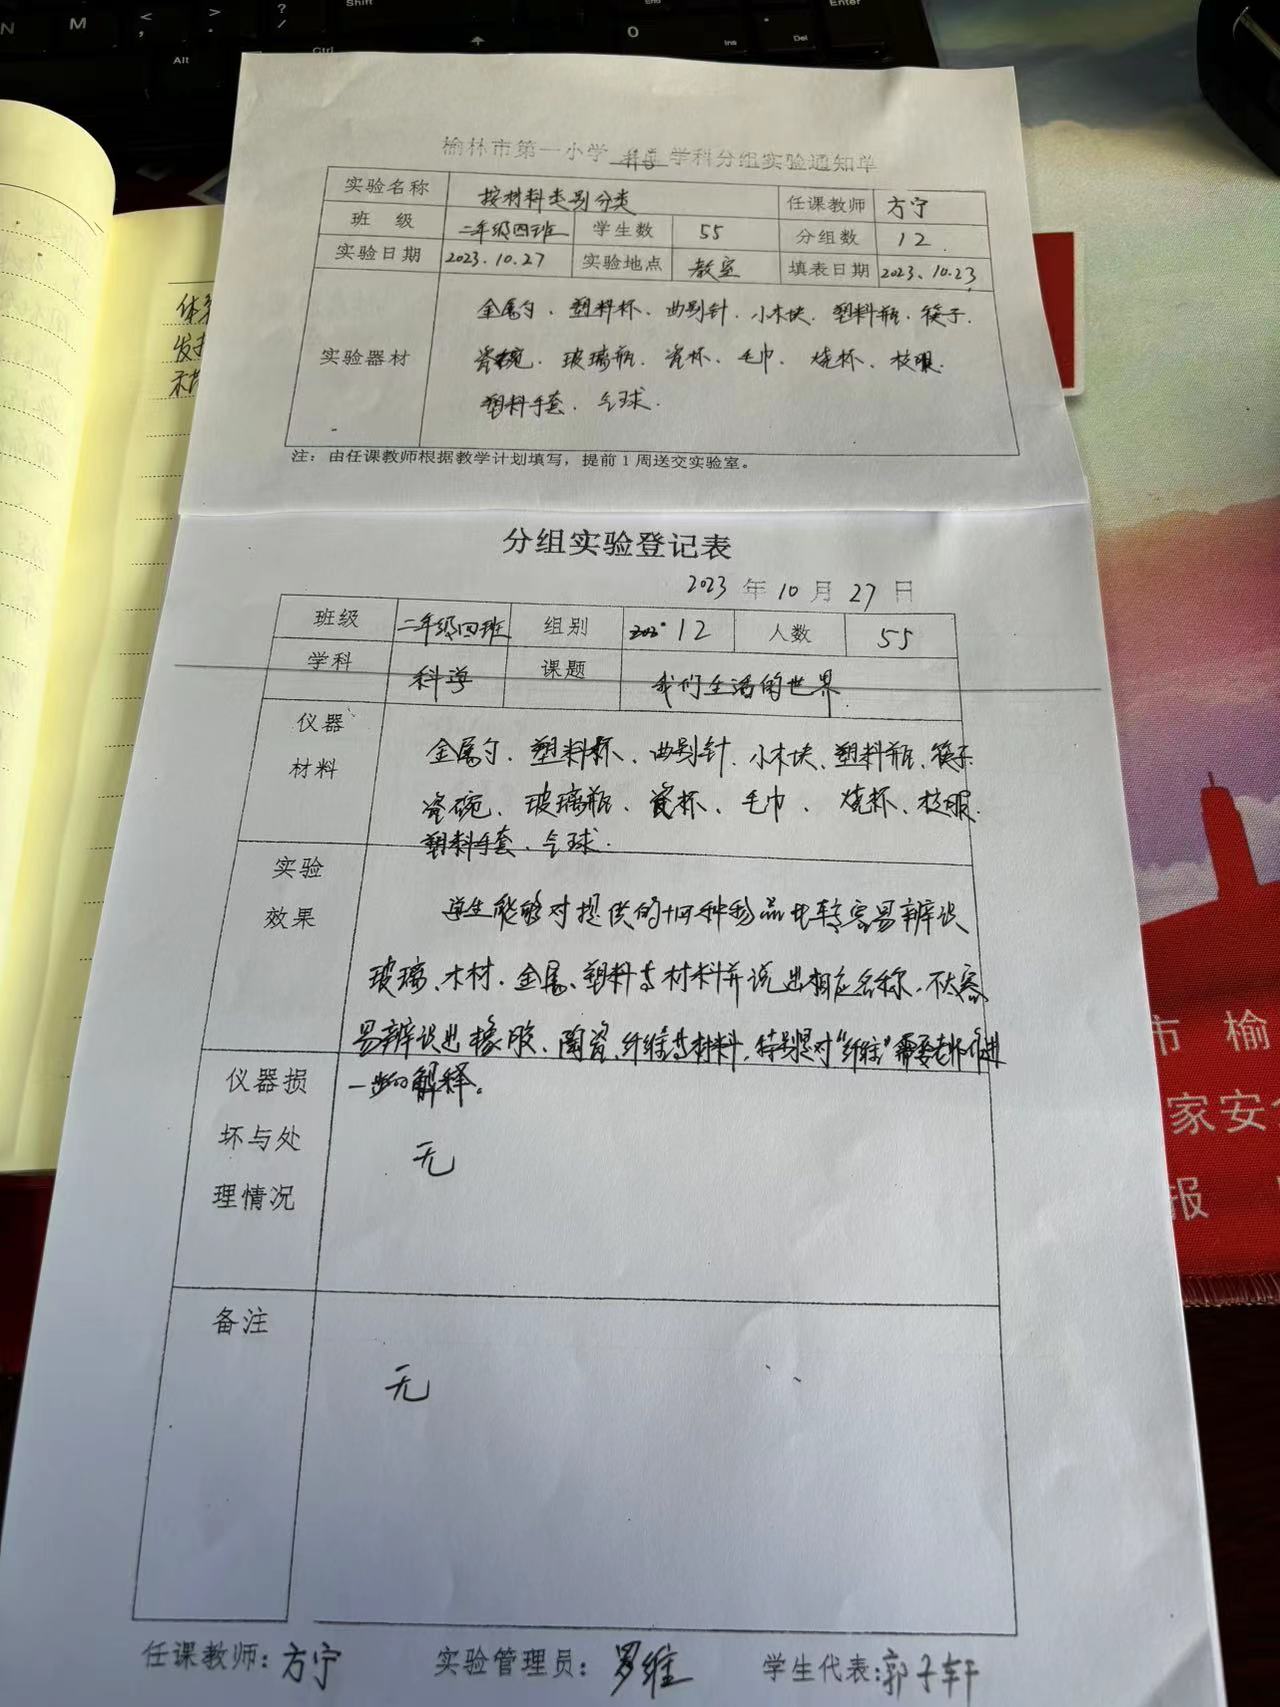 榆林市第一小学 科学 学科分组实验通知单
实验名称 按材料类别分类 任课教师 方宁
班 级 二年级四班 学生数 55 分组数 12
实验日期 2023.10.27 实验地点 教室 填表日期 2023.10.23
金属勺、塑料杯、曲别针、小木块、塑料瓶、筷子、
实验器材 瓷碗、玻璃瓶、瓷杯、毛巾、烧杯、校服、
塑料手套、气球.
注：由任课教师根据教学计划填写，提前1周送交实验室。
分组实验登记表
2023 年 10 月 27 日
班级 二年级四班 组别 12 人数 55
学科 科学 课题 我们生活的世界
仪器 金属勺、塑料杯、曲别针、小木块、塑料瓶、筷子
材料 瓷碗、玻璃瓶、瓷杯、毛巾、烧杯、校服.
塑料手套、气球.
实验
效果 学生能够对提供的十四种物品比较容易辨识
玻璃、木材、金属、塑料等材料并说出相应名称，不太容
易辨识出橡胶、陶瓷、纤维等材料，特别是对“纤维”需要老师进
一步的解释。
仪器损
坏与处 无
理情况
备注
无
任课教师：方宁 实验管理员：罗维 学生代表：郭子轩
Shift
Enter
N M < , > . ? /
Alt Ctrl
0 Ins . Del
End
体
发
市 榆
家安
报